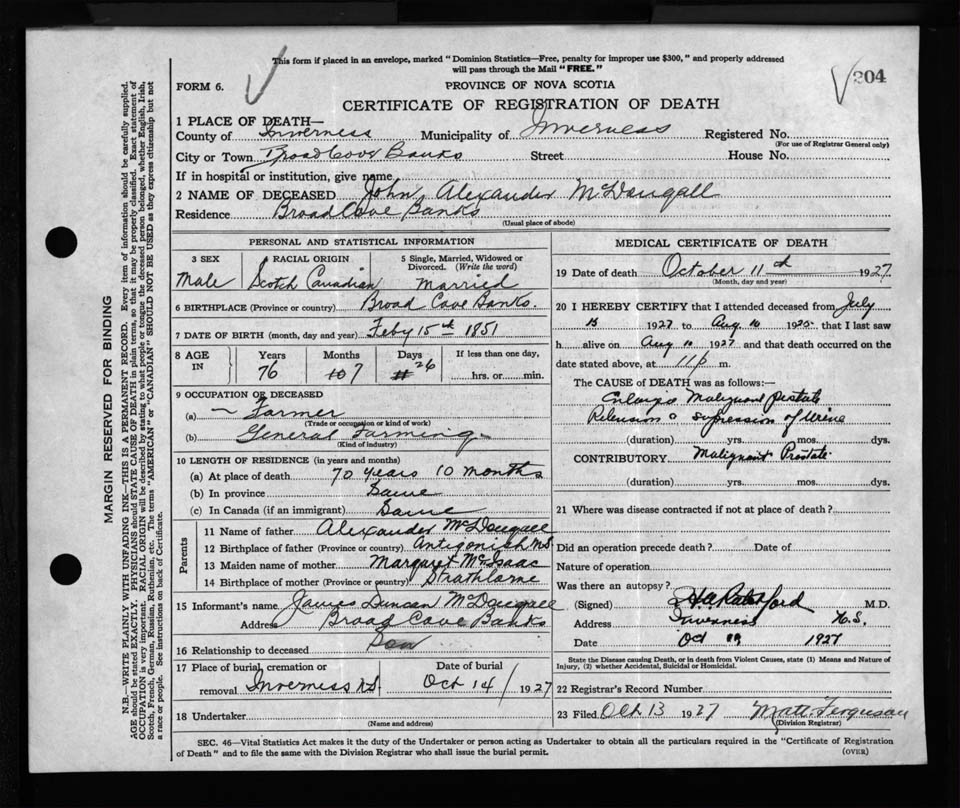 This form if placed in an envelope, marked "Dominion Statistics—Free, penalty for improper use $300," and properly addressed
will pass through the Mail "FREE."
304
FORM 6.
PROVINCE OF NOVA SCOTIA
CERTIFICATE OF REGISTRATION OF DEATH
1 PLACE OF DEATH—
County of Inverness Municipality of Inverness Registered No.
(For use of Registrar General only)
City or Town Broad Cove Banks Street House No.
If in hospital or institution, give name
2 NAME OF DECEASED John Alexander McDougall
Residence Broad Cove Banks
(Usual place of abode)
MARGIN RESERVED FOR BINDING
N.B.—WRITE PLAINLY WITH UNFADING INK—THIS IS A PERMANENT RECORD. Every item of information should be carefully supplied.
AGE should be stated EXACTLY. PHYSICIANS should STATE CAUSE OF DEATH in plain terms, so that it may be properly classified. Exact statement of
OCCUPATION is very important. RACIAL ORIGIN will be described by stating to what people or tongue the deceased person belonged, whether English, Irish,
Scotch, French, German, Russian, Ruthenian, etc. The terms "AMERICAN" or "CANADIAN" SHOULD NOT BE USED as they express citizenship but not
a race or people. See instructions on back of Certificate.
PERSONAL AND STATISTICAL INFORMATION
3 SEX
Male
RACIAL ORIGIN
Scotch Canadian
5 Single, Married, Widowed or
Divorced. (Write the word)
Married
6 BIRTHPLACE (Province or country) Broad Cove Banks.
7 DATE OF BIRTH (month, day and year) Feby 15th 1851
8 AGE
IN
Years
76
Months
10 7
Days
26
If less than one day,
hrs. or min.
9 OCCUPATION OF DECEASED
(a) Farmer
(Trade or occupation or kind of work)
(b) General Farming
(Kind of industry)
10 LENGTH OF RESIDENCE (in years and months)
(a) At place of death 70 years 10 months
(b) In province Same
(c) In Canada (if an immigrant) Same
Parents
11 Name of father Alexander McDougall
12 Birthplace of father (Province or country) Antigonish N.S.
13 Maiden name of mother Margaret McIsaac
14 Birthplace of mother (Province or country) Strathlorne
15 Informant's name James Duncan McDougall
Address Broad Cove Banks
16 Relationship to deceased Son
17 Place of burial, cremation or
removal Inverness N.S.
Date of burial
Oct 14 1927
18 Undertaker
(Name and address)
MEDICAL CERTIFICATE OF DEATH
19 Date of death October 11th 1927
(Month, day and year)
20 I HEREBY CERTIFY that I attended deceased from July
15 1927 to Aug 10 1925 that I last saw
h alive on Aug 10 1927 and that death occurred on the
date stated above, at 11 p m.
The CAUSE of DEATH was as follows:
Malignant Prostate
Retension & supression of Urine
(duration) yrs. mos. dys.
CONTRIBUTORY Malignant Prostate
(duration) yrs. mos. dys.
21 Where was disease contracted if not at place of death?
Did an operation precede death? Date of
Nature of operation
Was there an autopsy?
(Signed) M.D.
Address Inverness N.S.
Date Oct 1927
State the Disease causing Death, or in death from Violent Causes, state (1) Means and Nature of
Injury, (2) whether Accidental, Suicidal or Homicidal.
22 Registrar's Record Number
23 Filed Oct 13 1927 Matt. Ferguson
(Division Registrar)
SEC. 46—Vital Statistics Act makes it the duty of the Undertaker or person acting as Undertaker to obtain all the particulars required in the "Certificate of Registration
of Death" and to file the same with the Division Registrar who shall issue the burial permit.
(OVER)